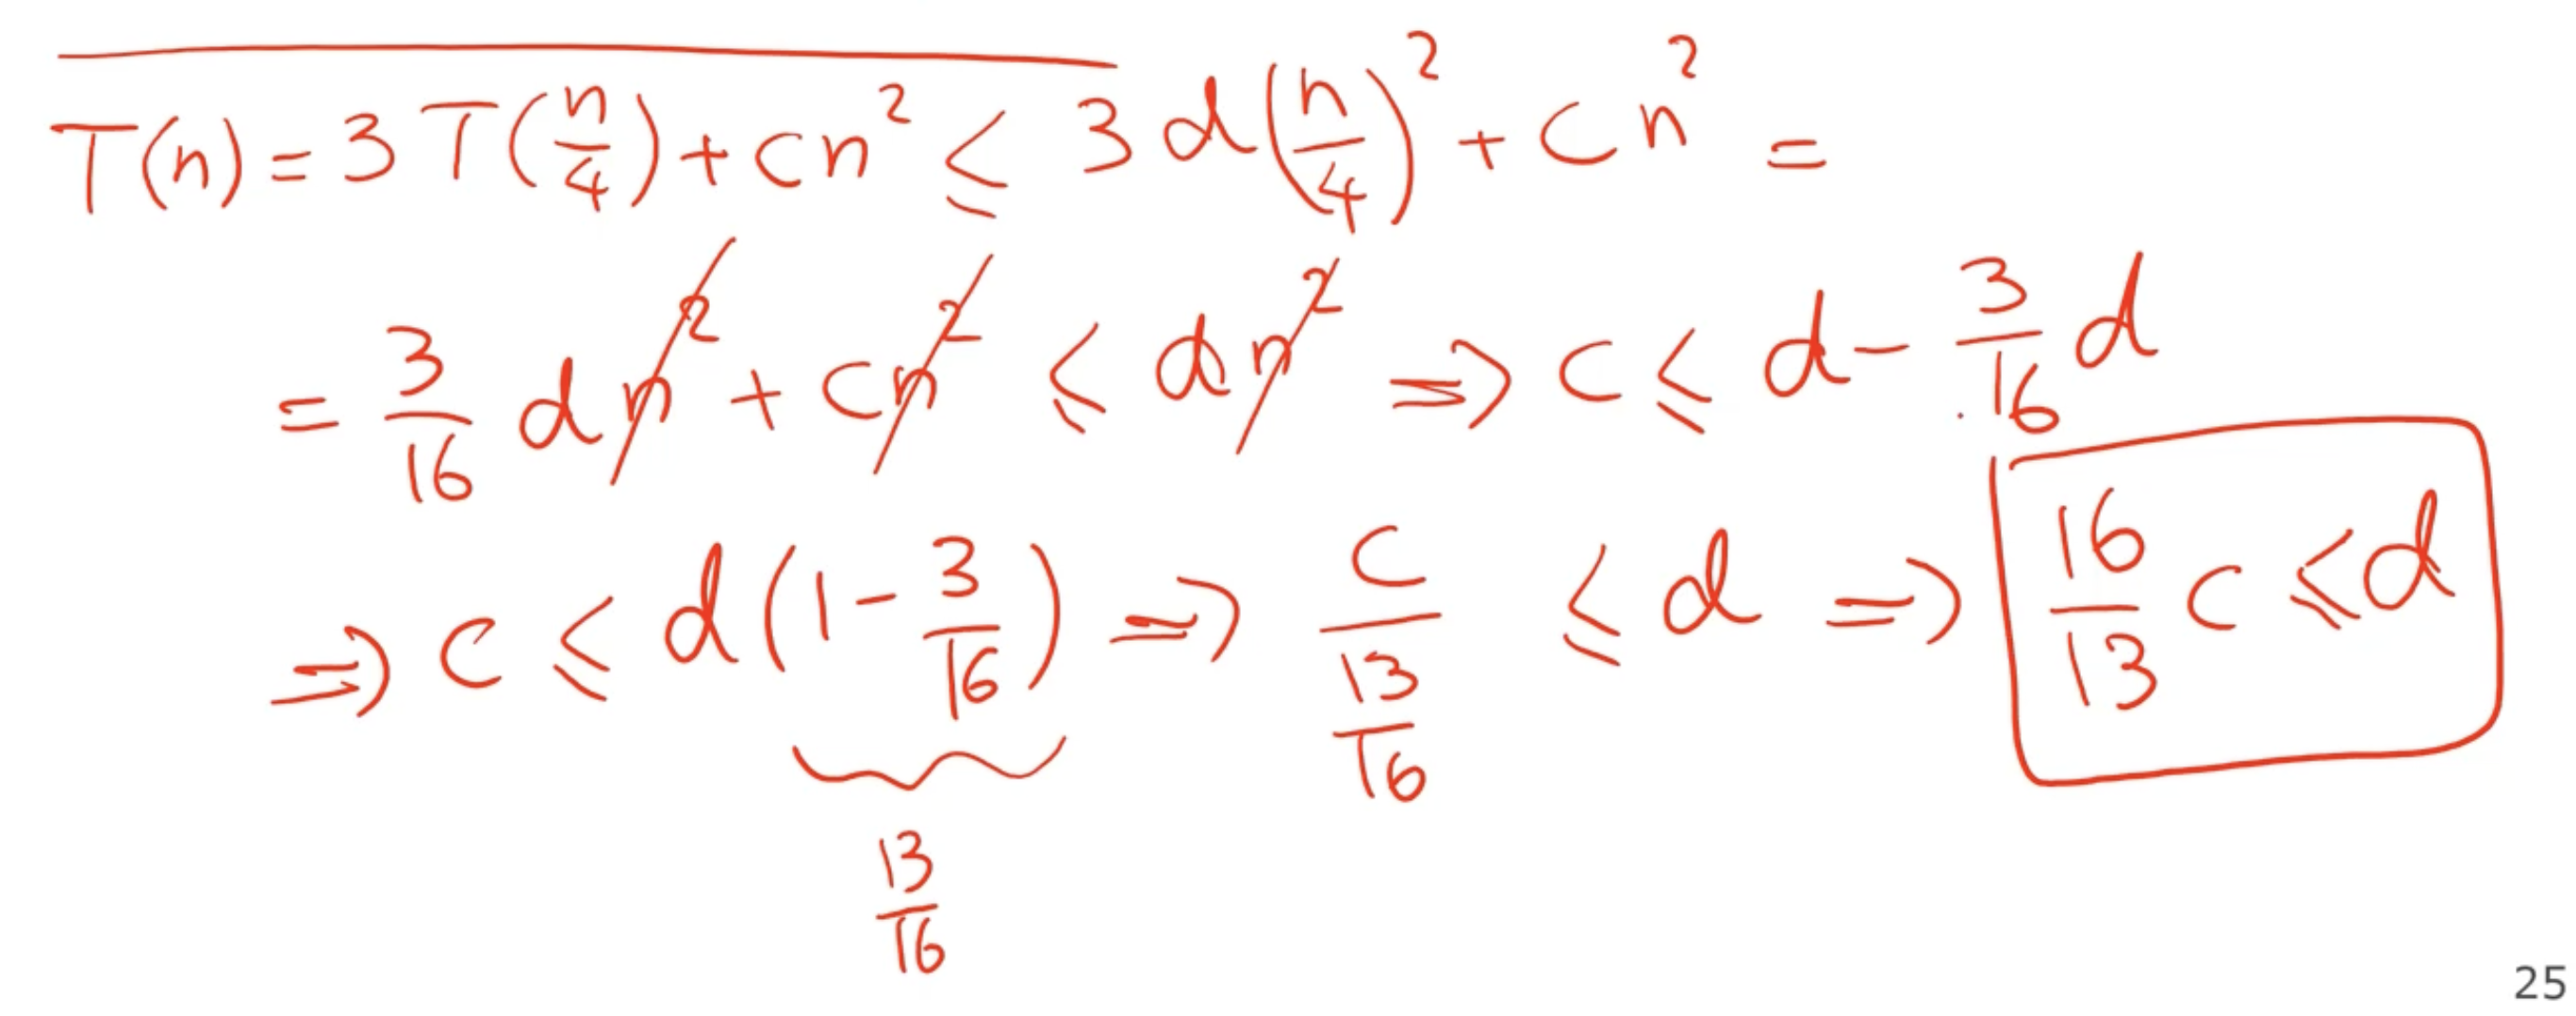 T(n) = 3T(n/4) + cn² ≤ 3d(n/4)² + cn² =
= 3/16 dn² + cn² ≤ dn² ⇒ c ≤ d - 3/16 d
⇒ c ≤ d(1 - 3/16) ⇒ c/(13/16) ≤ d ⇒ 16/13 c ≤ d
13/16
25